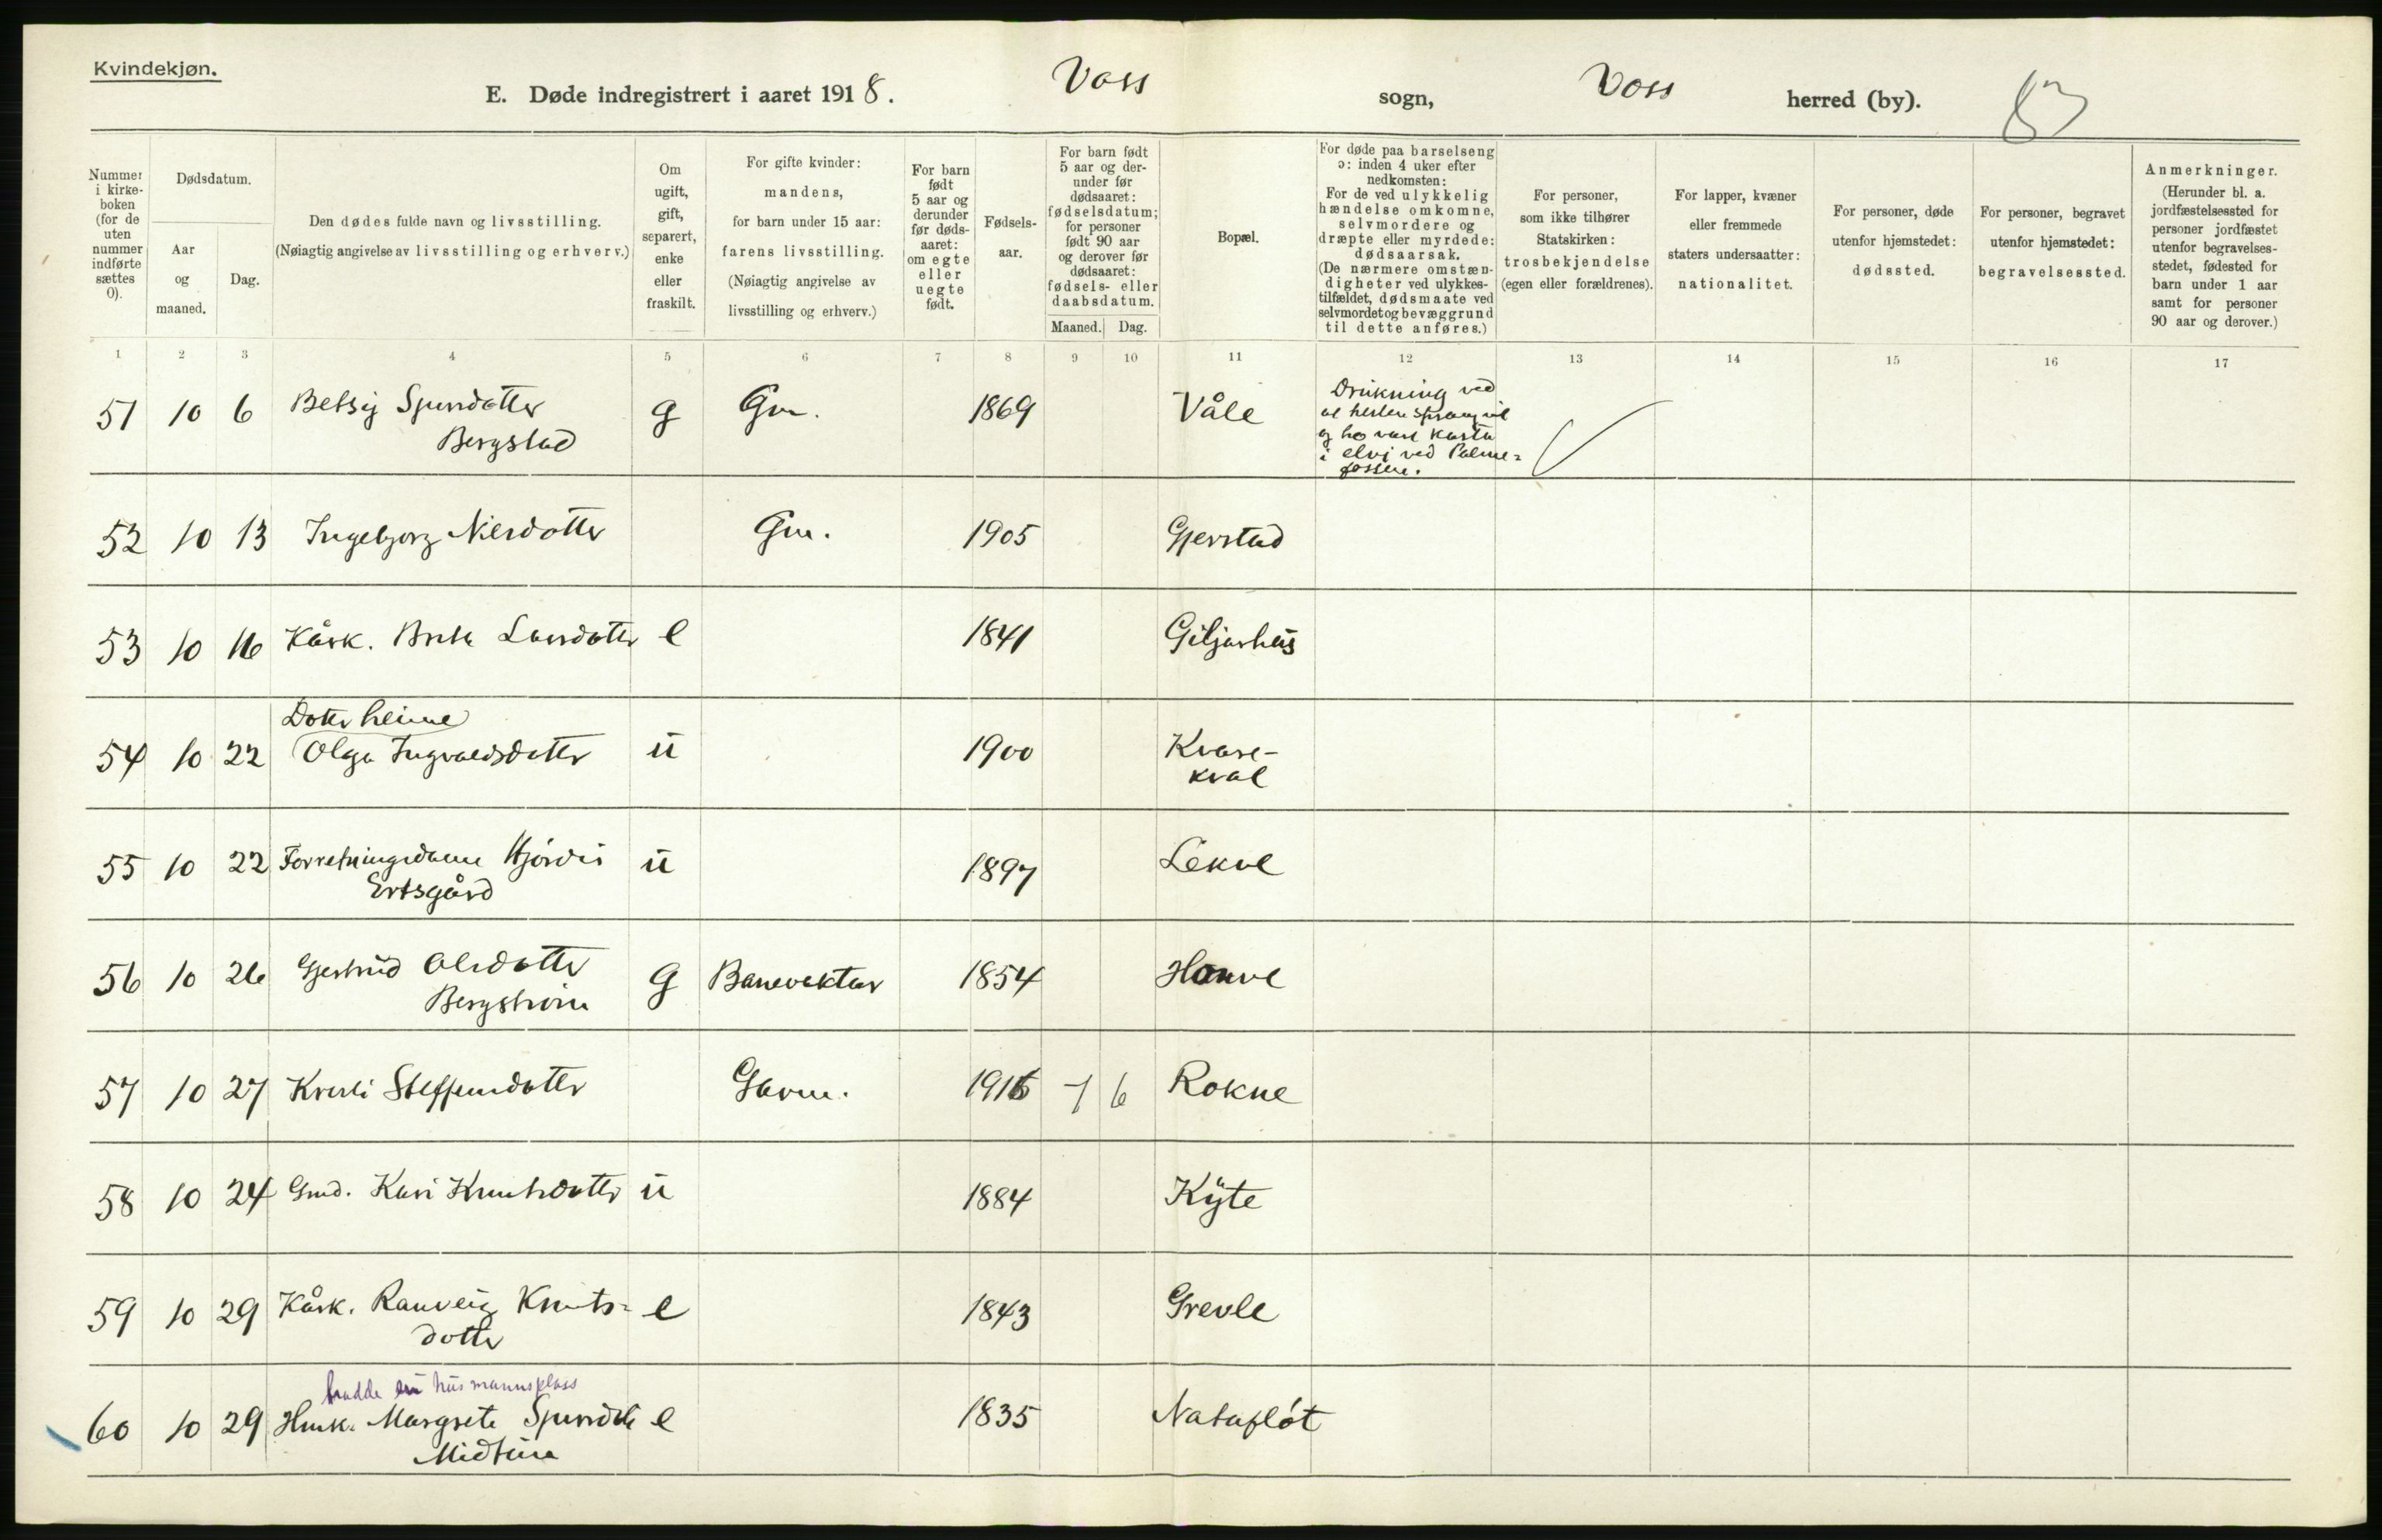 Kvindekjøn.
E. Døde indregistrert i aaret 1918. Voss sogn, Voss herred (by). 83
Nummer i kirke-boken (for de uten nummer indførte sættes 0).
Dødsdatum.
Aar og maaned.
Dag.
Den dødes fulde navn og livsstilling.
(Nøiagtig angivelse av livsstilling og erhverv.)
Om ugift, gift, separert, enke eller fraskilt.
For gifte kvinder: mandens, for barn under 15 aar: farens livsstilling. (Nøiagtig angivelse av livsstilling og erhverv.)
For barn født 5 aar og derunder før døds-aaret: om egte eller uegte født.
Fødsels-aar.
For barn født 5 aar og der-under før dødsaaret: fødselsdatum; for personer født 90 aar og derover før dødsaaret: fødsels- eller daabsdatum.
Maaned. Dag.
Bopæl.
For døde paa barselseng ɔ: inden 4 uker efter nedkomsten: For de ved ulykkelig hændelse omkomne, selvmordere og dræpte eller myrdede: dødsaarsak. (De nærmere omstæn-digheter ved ulykkes-tilfældet, dødsmaate ved selvmordet og bevæggrund til dette anføres.)
For personer, som ikke tilhører Statskirken: trosbekjendelse (egen eller forældrenes).
For lapper, kvæner eller fremmede staters undersaatter: nationalitet.
For personer, døde utenfor hjemstedet: dødssted.
For personer, begravet utenfor hjemstedet: begravelsessted.
Anmerkninger. (Herunder bl. a. jordfæstelsessted for personer jordfæstet utenfor begravelses-stedet, fødested for barn under 1 aar samt for personer 90 aar og derover.)
1 2 3 4 5 6 7 8 9 10 11 12 13 14 15 16 17
51 10 6 Betsy Sjursdotter g Gm. 1869 Våle Drukning ved
Bergstad at hesten sprang ut
og ho vart kasta
i elvi ved Palme-
fossen.
52 10 13 Ingebjorg Nilsdotter Gm. 1905 Gjerstad
53 10 16 Kårk. Brita Larsdotter e 1841 Giljarhus
Dotter heime
54 10 22 Olga Ingvaldsdotter u 1900 Kvare-
kval
55 10 22 Forretningsdame Hjördis u 1897 Lekve
Ertsgård
56 10 26 Gjertrud Olsdotter g Banevaktar 1854
Bergstrøm
57 10 27 Kristi Steffensdotter Garm. 1916 7 6 Rokne
58 10 24 Gmd. Kari Knutsdotter u 1884 Kyte
59 10 29 Kårk. Ranveig Knuts- e 1843 Grevle
dotter
hadde ein husmannsplass
60 10 29 Hmk. Margreta Sjursdtr e 1835 Nataflöt
Midtun